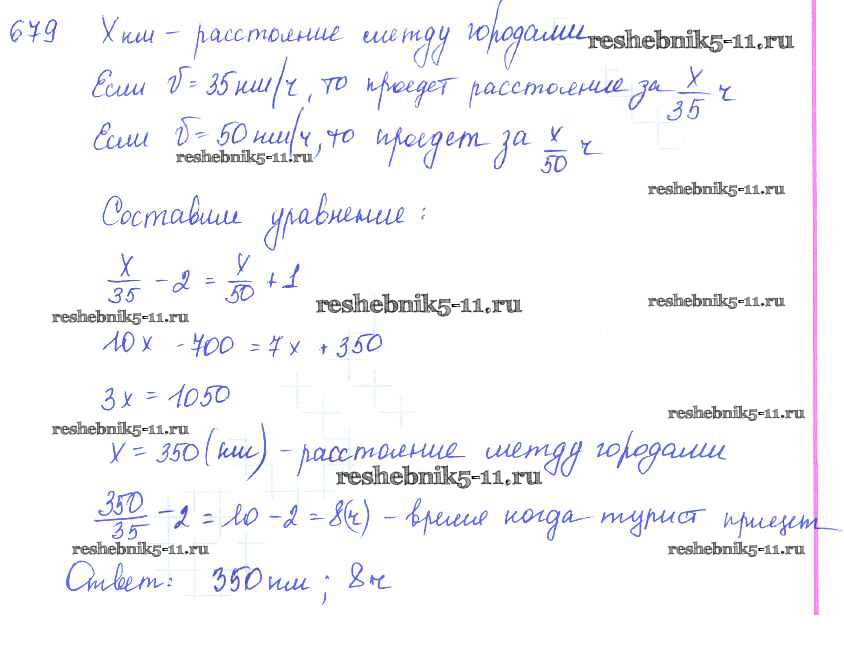 679 X км – расстояние между городами reshebnik5-11.ru
Если v = 35 км/ч, то проедет расстояние за x/35 ч
Если v = 50 км/ч, то проедет за x/50 ч
reshebnik5-11.ru
reshebnik5-11.ru
Составим уравнение:
x/35 - 2 = x/50 + 1
reshebnik5-11.ru reshebnik5-11.ru reshebnik5-11.ru
10x - 700 = 7x + 350
3x = 1050
reshebnik5-11.ru
reshebnik5-11.ru
x = 350 (км) – расстояние между городами
reshebnik5-11.ru
350/35 - 2 = 10 - 2 = 8(ч) – время когда турист приедет
reshebnik5-11.ru reshebnik5-11.ru
Ответ: 350 км ; 8 ч